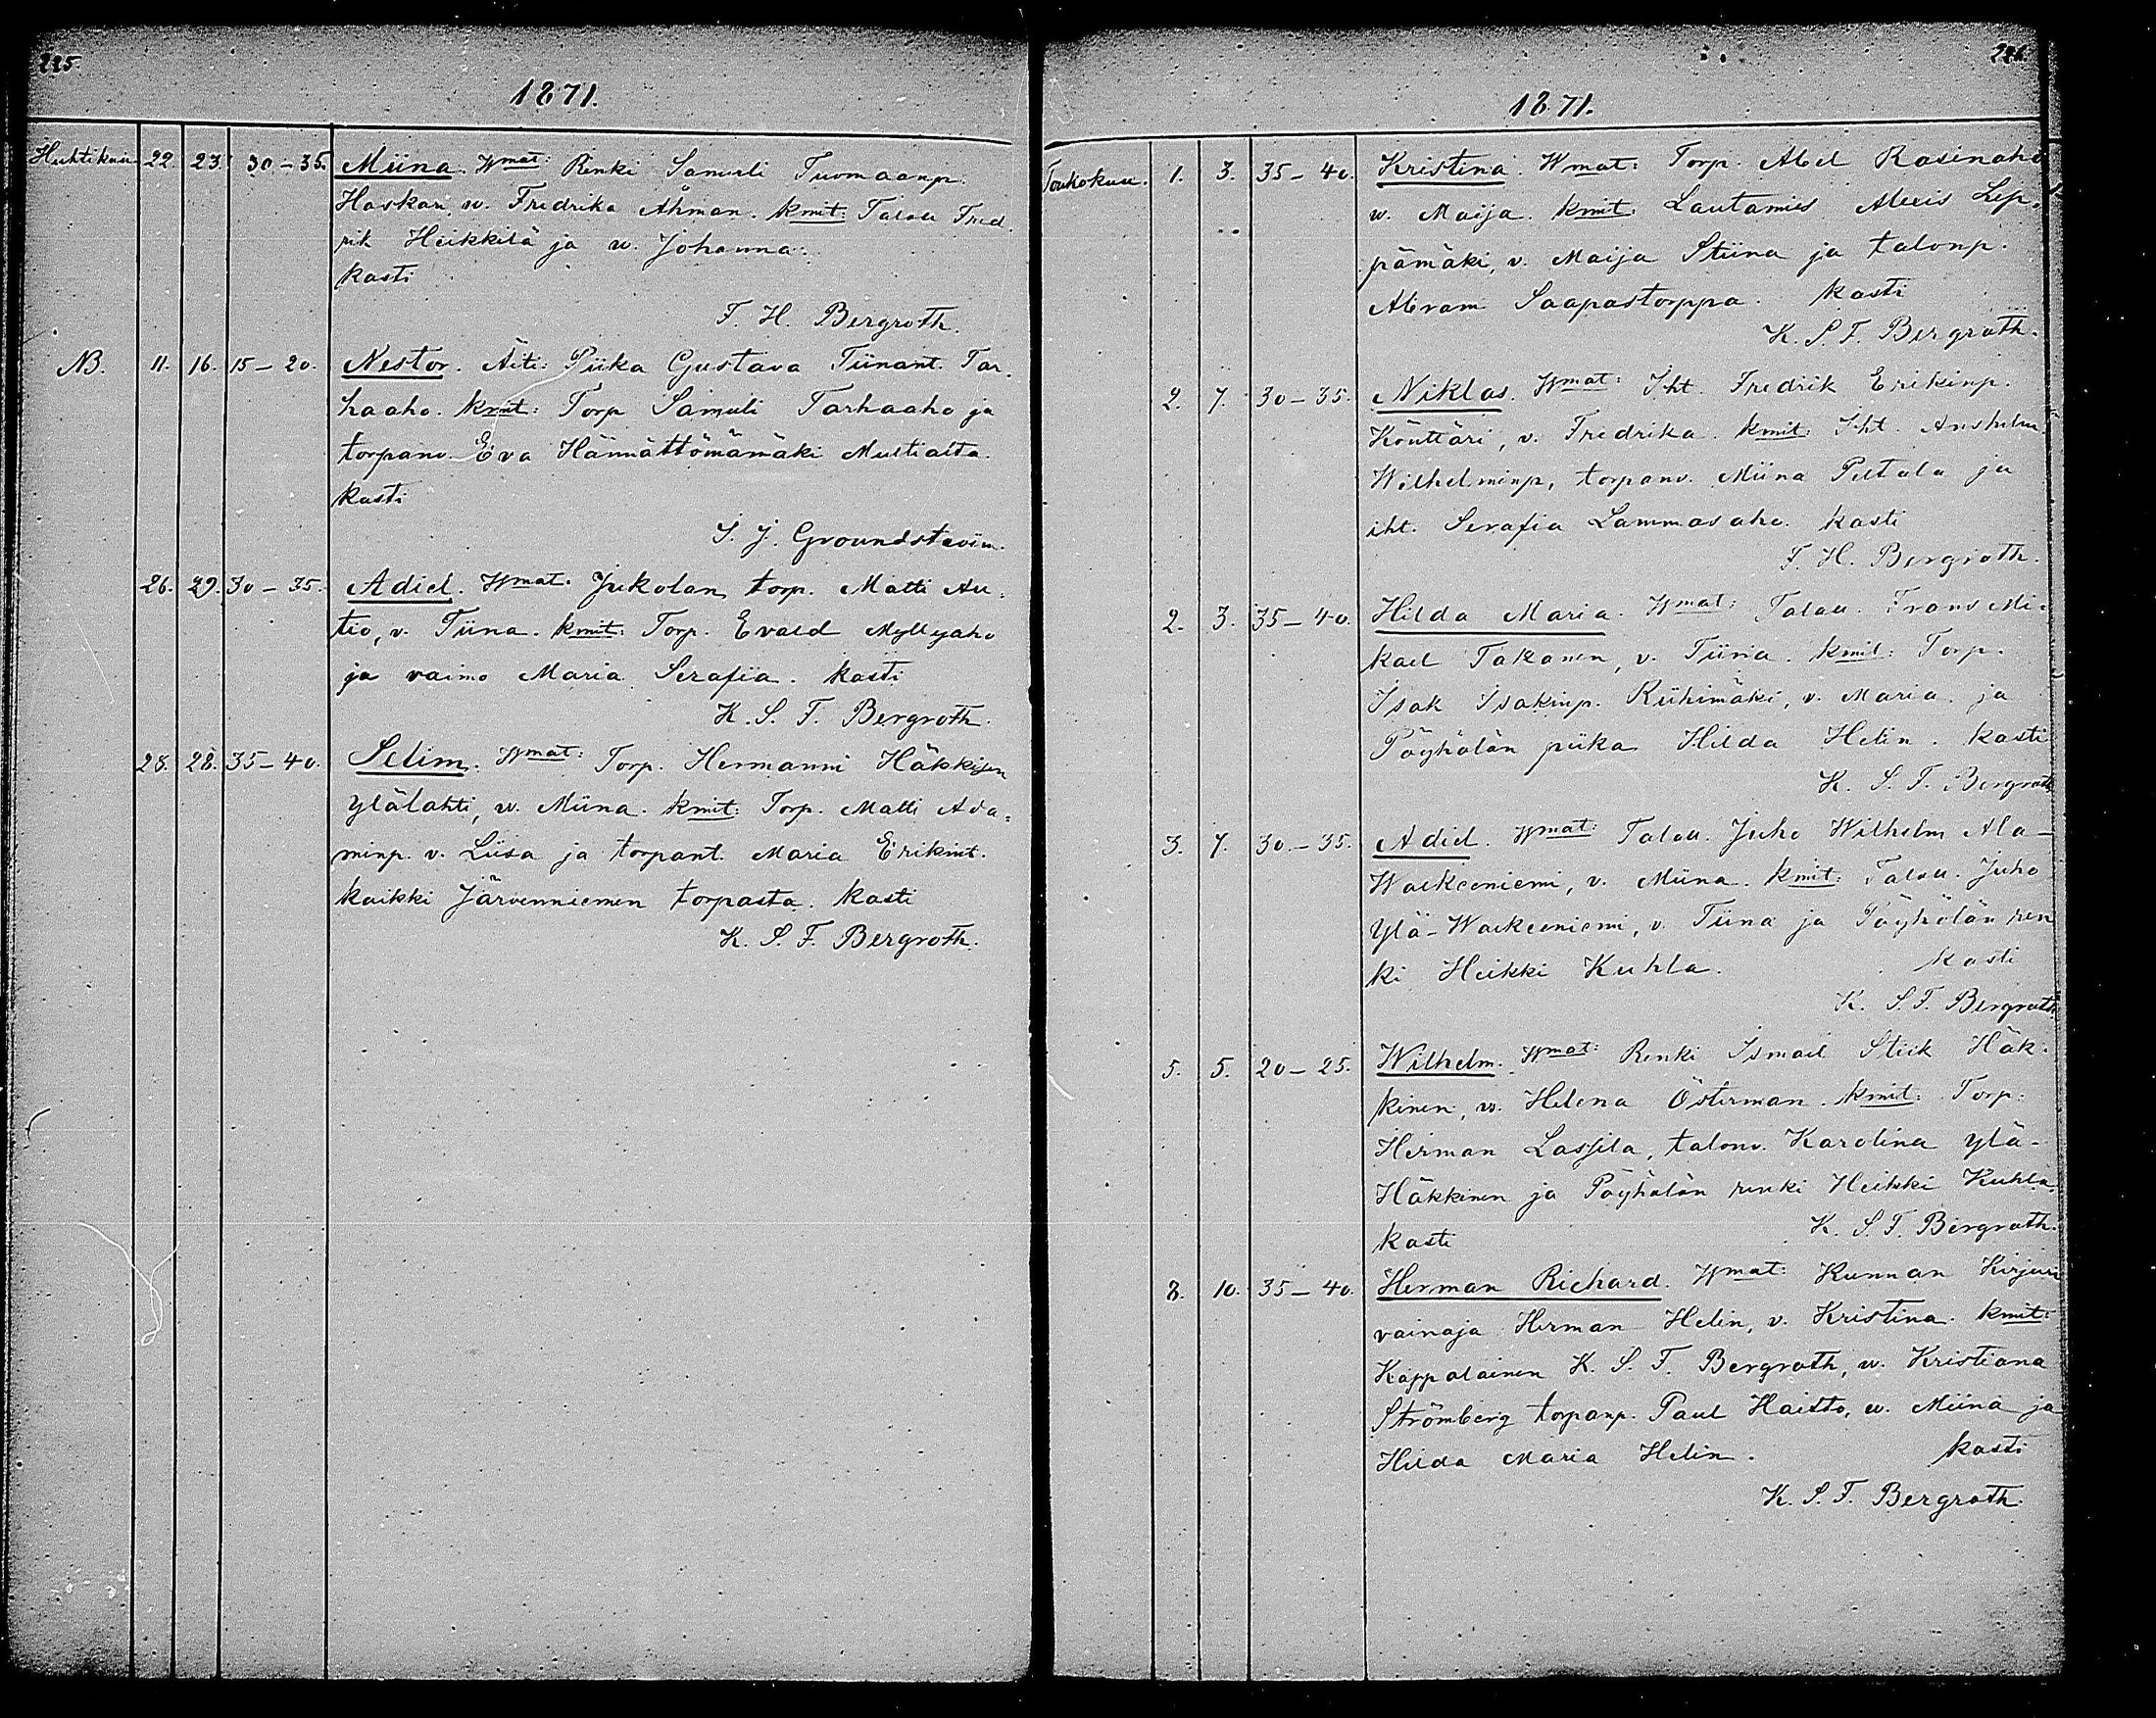 225.
1871.
Huhtikuu 22. 23. 30-35. Miina. Wmat: Renki Samuli Tuomaanp.
Haskari w. Fredrika Åhman. kmit: Talou Fred
rik Heikkilä ja w. Johanna.
kasti
F. H. Bergroth.
NB. 11. 16. 15-20. Nestor. Äiti: Piika Gustava Tiinant. Tar.
haaho. kmit: Torp Samuli Tarhaaho ja
torpanv. Eva Hännättömämäki Multialta.
kasti
I. J. Groundstroöm.
26. 29. 30-35. Adiel. Wmat. Jukolan torp. Matti Au,
tio, v. Tiina. kmit: Torp. Evald Myllyaho
ja vaimo Maria Serafia. kasti
K. S. F. Bergroth.
28. 28. 35-40. Selim. Wmat: Torp. Hermanni Häkkisen
ylälahti, w. Miina. kmit: Torp. Matti Ada=
minp. v. Liisa ja torpant. Maria Erikint.
kaikki Järvenniemen torpasta. kasti
K. S. F. Bergroth.
226.
1871.
Toukokuu. 1. 3. 35-40. Kristina. Wmat: Torp. Abel Rasinaho
w. Maija. kmit: Lautamies Alexis Lep,
pämäki, v. Maija Stiina ja talonp.
Abram Saapastorppa. kasti
K. S. F. Bergroth.
2. 7. 30-35. Niklas. Wmat: Iht. Fredrik Erikinp.
Könttäri, v. Fredrika. kmit: Iht. Anshelm
Wilhelminp, torpanv. Miina Peltola ja
iht. Serafia Lammasaho. kasti
F. H. Bergroth.
2. 3. 35-40. Hilda Maria. Wmat: Talou. Frans Mi=
kael Takanen, v. Tiina. kmit: Torp.
Isak Isakinp. Riihimäki, v. Maria ja
Pöyhölän piika Hilda Helin. kasti
K. S. F. Bergroth
3. 7. 30-35. Adiel. Wmat: Talou. Juho Wilhelm Ala-
Walkeeniemi, v. Miina. kmit: Talou. Juho
Ylä-Walkeeniemi, v. Tiina ja Pöyhölän ren
ki Heikki Kuhla. kasti
K. S. F. Bergroth.
5. 5. 20-25. Wilhelm. Wmat: Renki Ismael Stiik Häk.
kinen, w. Helena Österman. kmit: Torp.
Herman Lassila, talonv. Karolina ylä-
Häkkinen ja Pöyhölän renki Heikki Kuhla.
kasti K. S. F. Bergroth.
8. 10. 35-40. Herman Richard. Wmat: Kunnan Kirjuri
vainaja Herman Helin, v. Kristina. kmit:
Kappalainen K. S. F. Bergroth, w. Kristiana
Strömberg torpanp. Paul Haisto, w. Miina ja
Hilda Maria Helin. kasti
K. S. F. Bergroth.